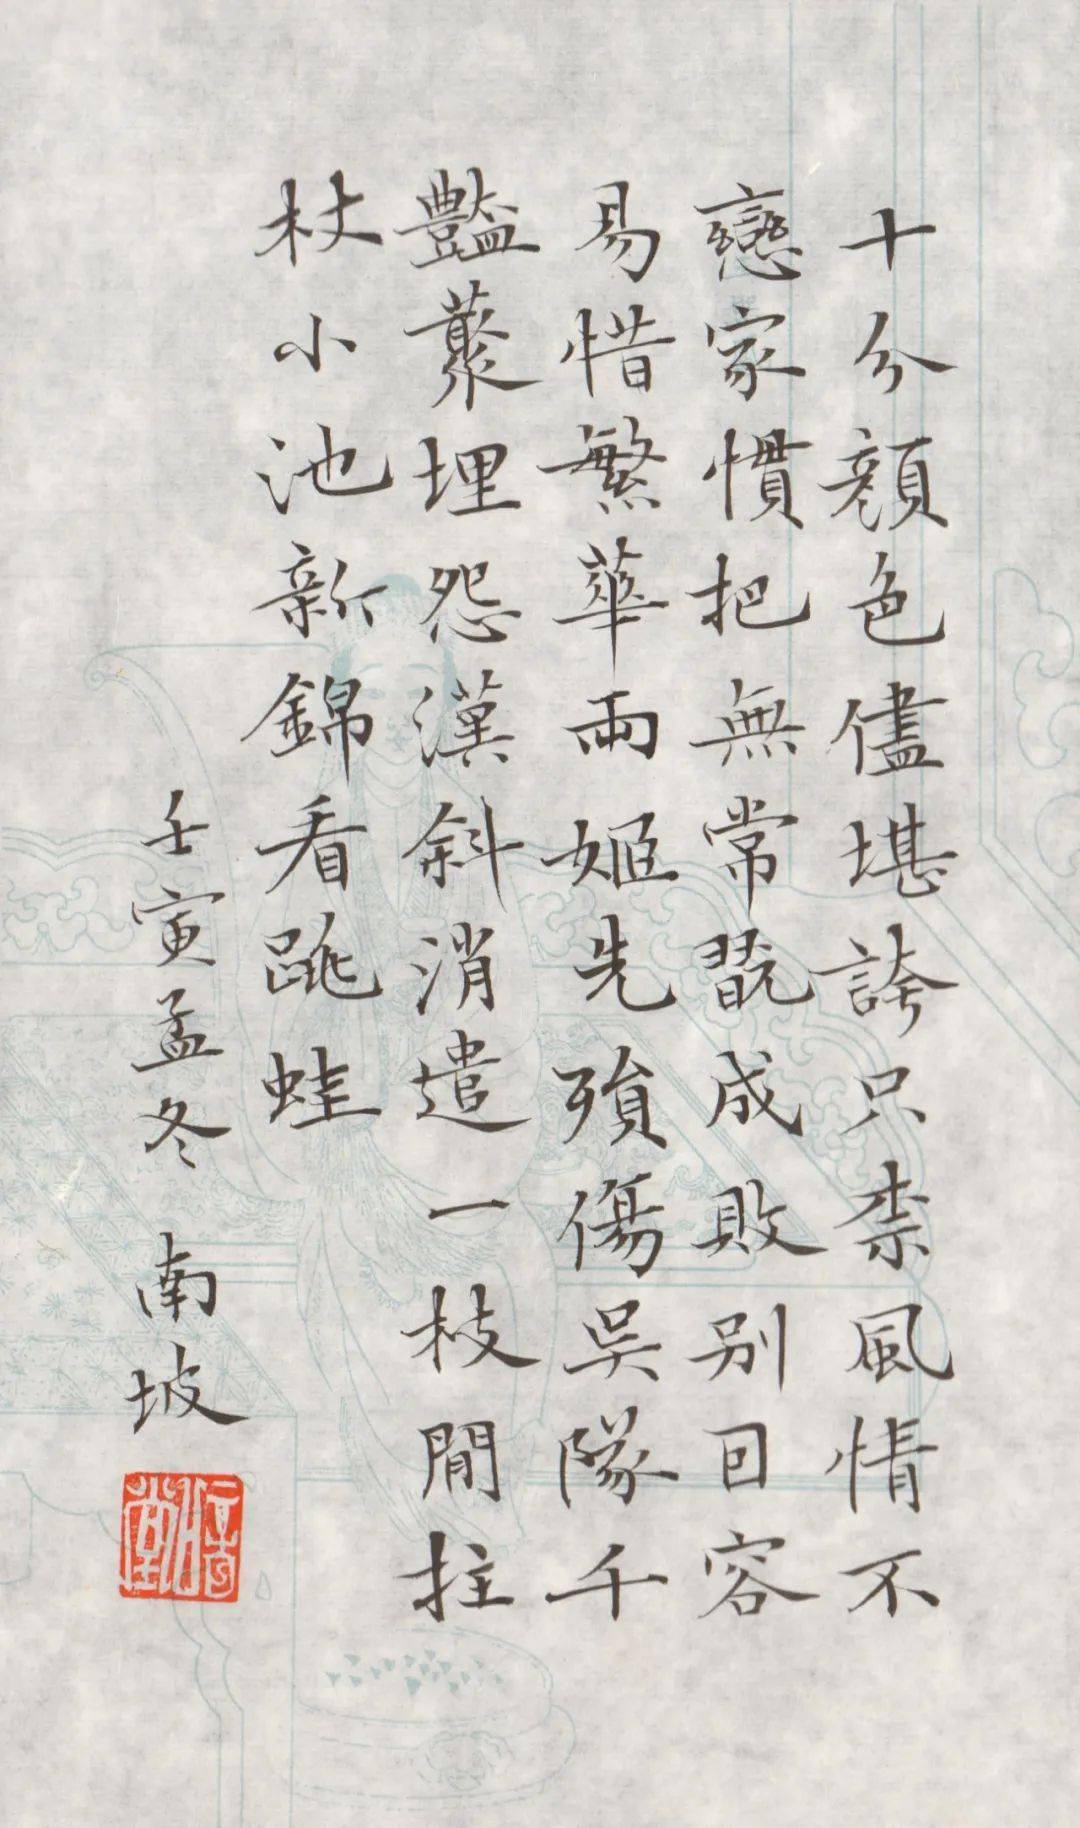 十分顔色儘堪誇只柰風情不
戀家慣把無常翫成敗別回容
易惜繁華兩姬先殞傷吳隊千
豔藂埋怨漢斜消遣一枝閒拄
杖小池新錦看跳蛙
壬寅孟冬 南坡